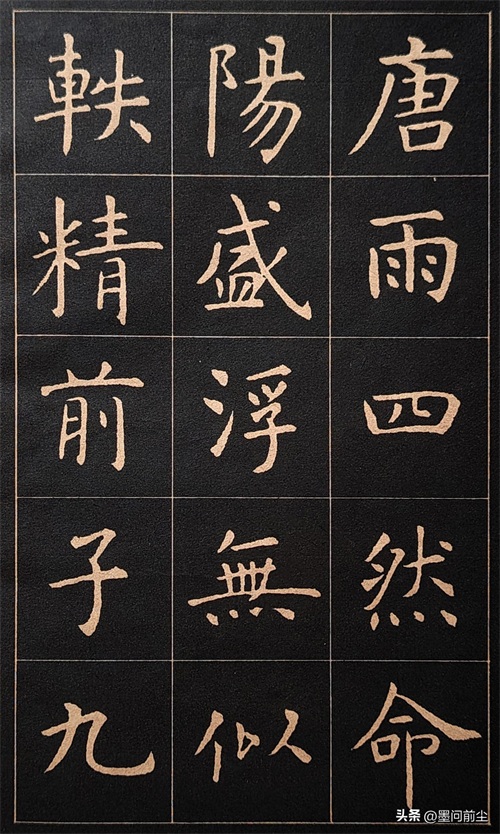 唐雨四然命
陽盛浮無似
軼精前子九
头条 @墨问前尘